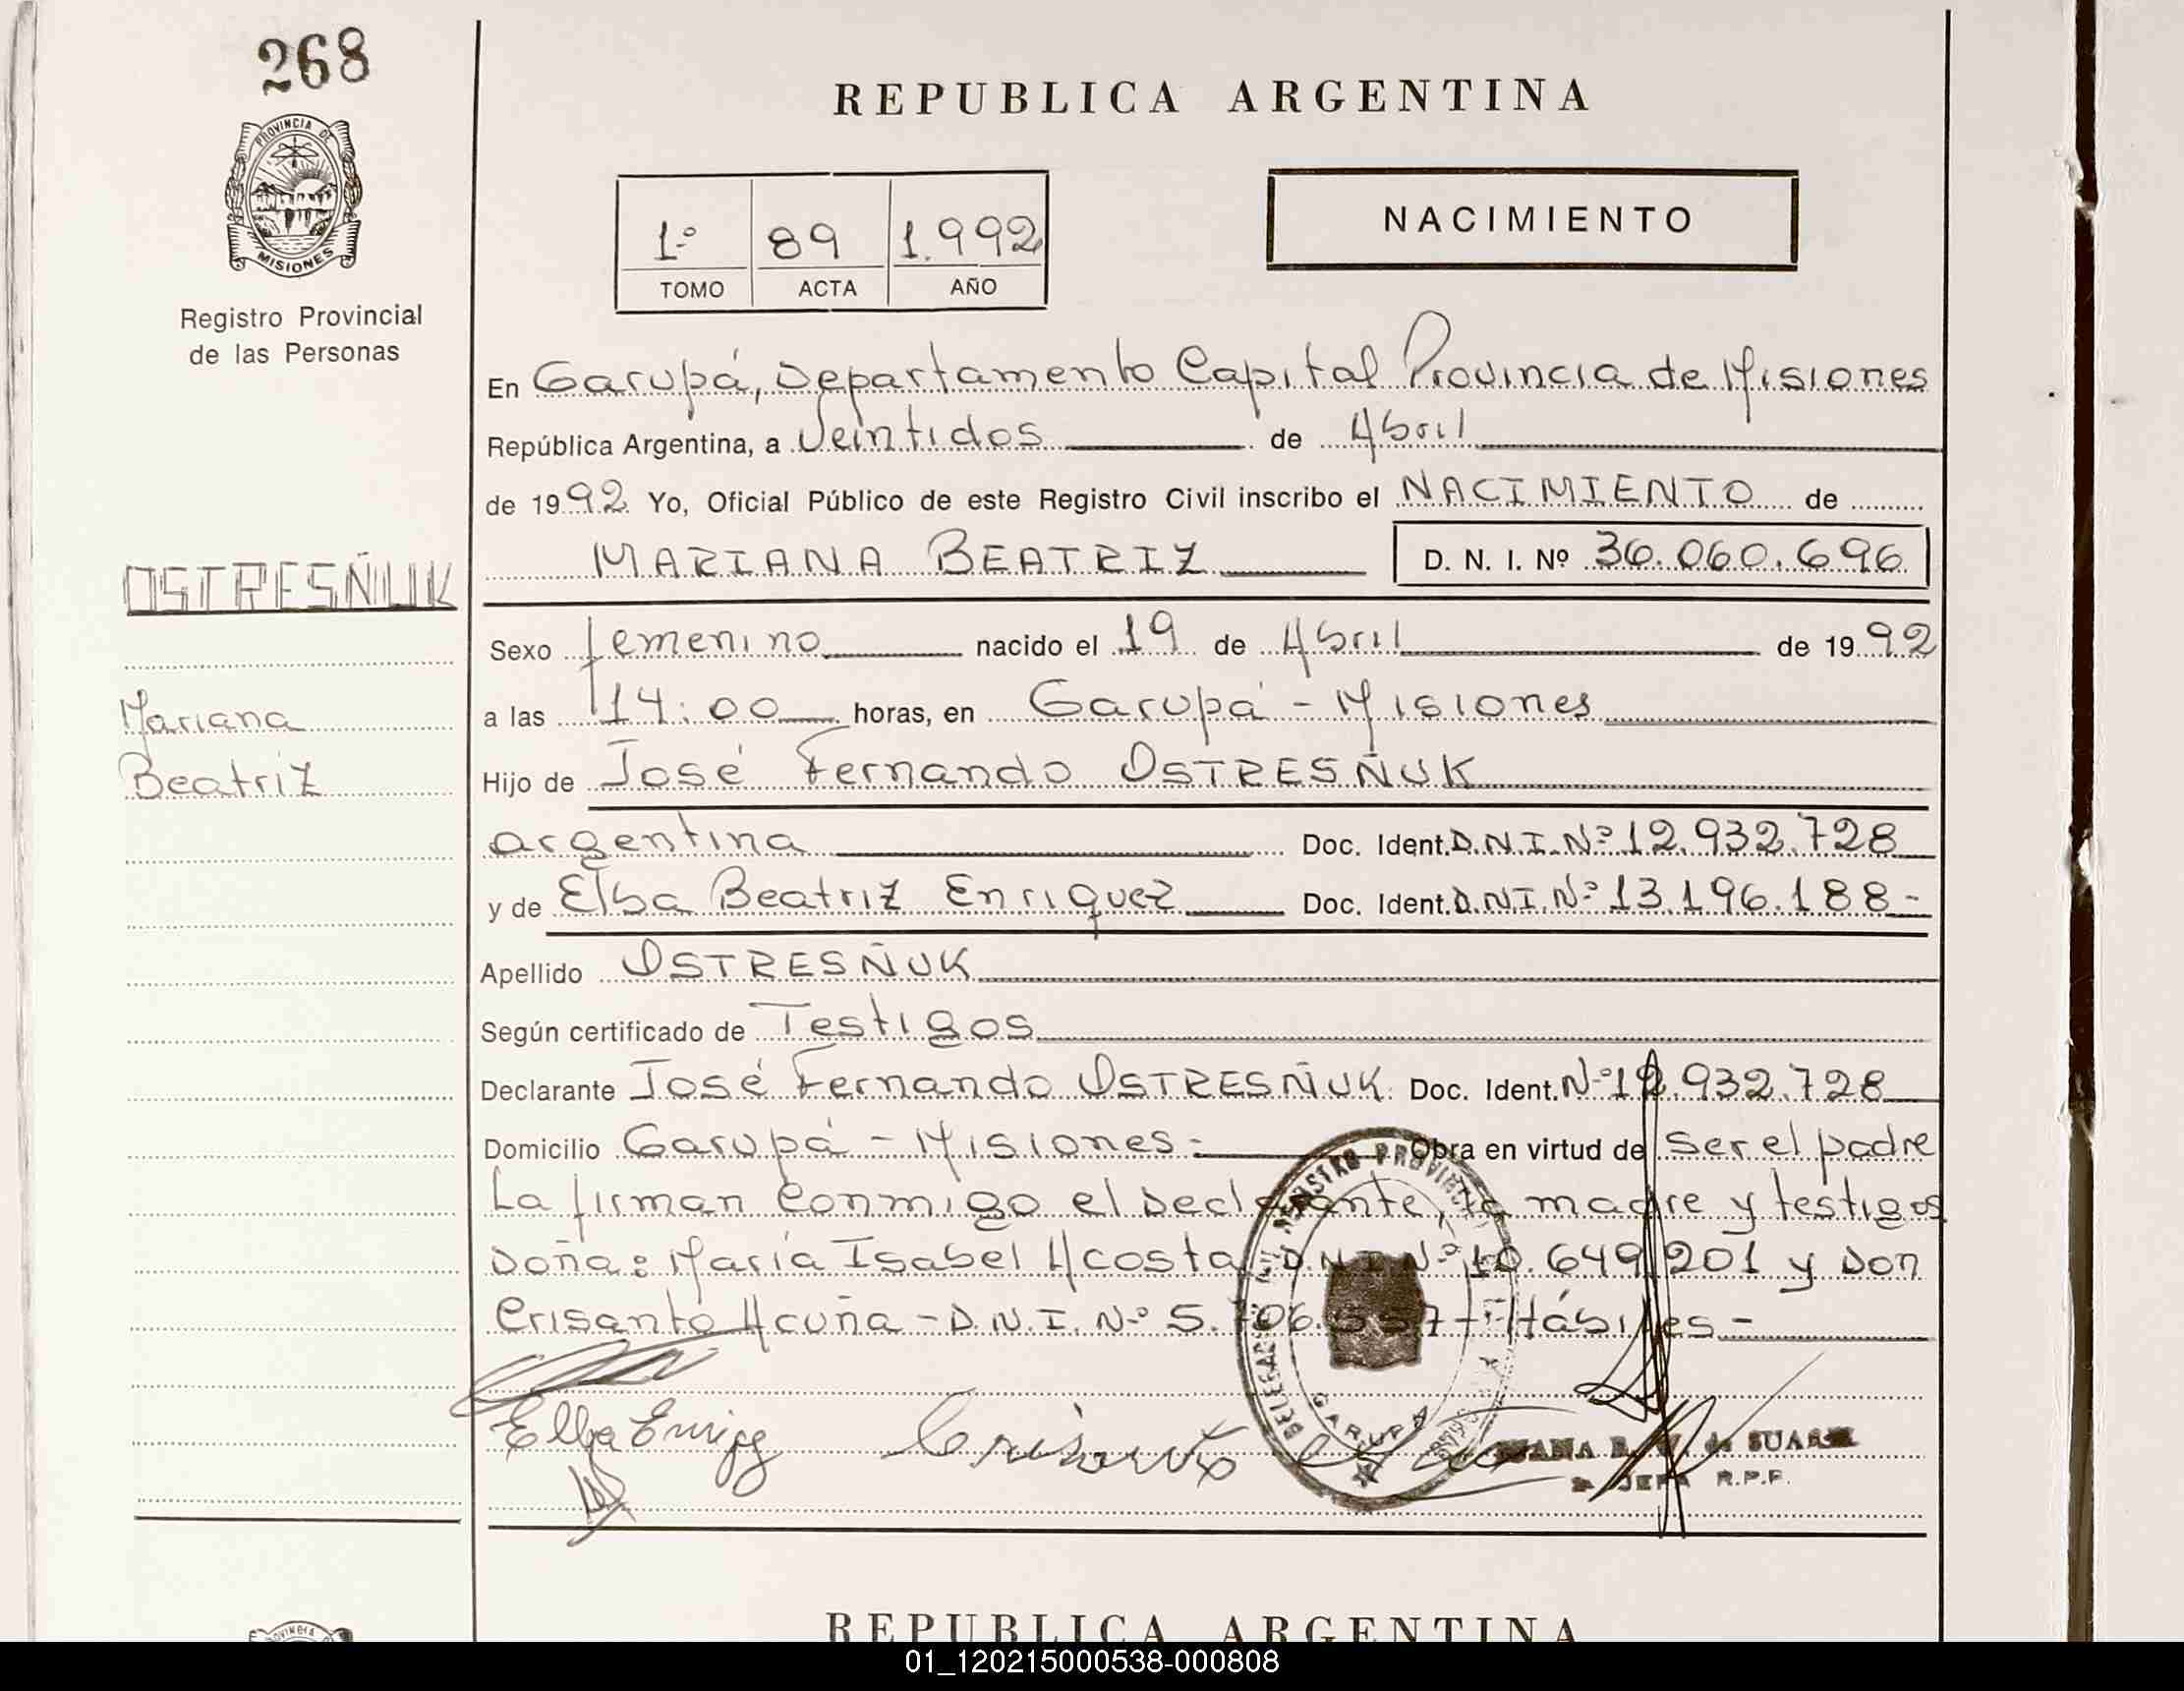 268
PROVINCIA DE
MISIONES
Registro Provincial
de las Personas
OSTRESÑUK
Mariana
Beatriz
REPUBLICA ARGENTINA
1º 89 1.992
TOMO ACTA AÑO
NACIMIENTO
En Garupá, Departamento Capital Provincia de Misiones
República Argentina, a Veintidos de Abril
de 1992 Yo, Oficial Público de este Registro Civil inscribo el NACIMIENTO de
MARIANA BEATRIZ D. N. I. Nº 36.060.696
Sexo femenino nacido el 19 de Abril de 1992
a las 14:00 horas, en Garupá - Misiones
Hijo de José Fernando OSTRESÑUK
argentina Doc. Ident. D.N.I. Nº 12.932.728
y de Elba Beatriz Enriquez Doc. Ident. D.N.I. Nº 13.196.188-
Apellido OSTRESÑUK
Según certificado de Testigos
Declarante José Fernando OSTRESÑUK Doc. Ident. Nº 12.932.728
Domicilio Garupá - Misiones.- Obra en virtud de Ser el padre
La firman conmigo el declarante, la madre y testigos
Doña: María Isabel Acosta D.N.I. Nº 10.649.201 y Don
Crisanto Acuña - D.N.I. Nº Hábiles -
REGISTRO PROVINCIAL
GARUPA
Elba Enriq
Crisanto
de SUAREZ
JEFA R.P.P.
PROVINCIA
REPUBLICA ARGENTINA
01_120215000538-000808